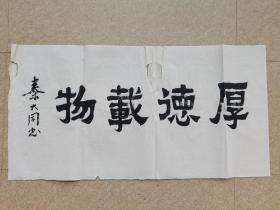 厚德載物
秦大同書